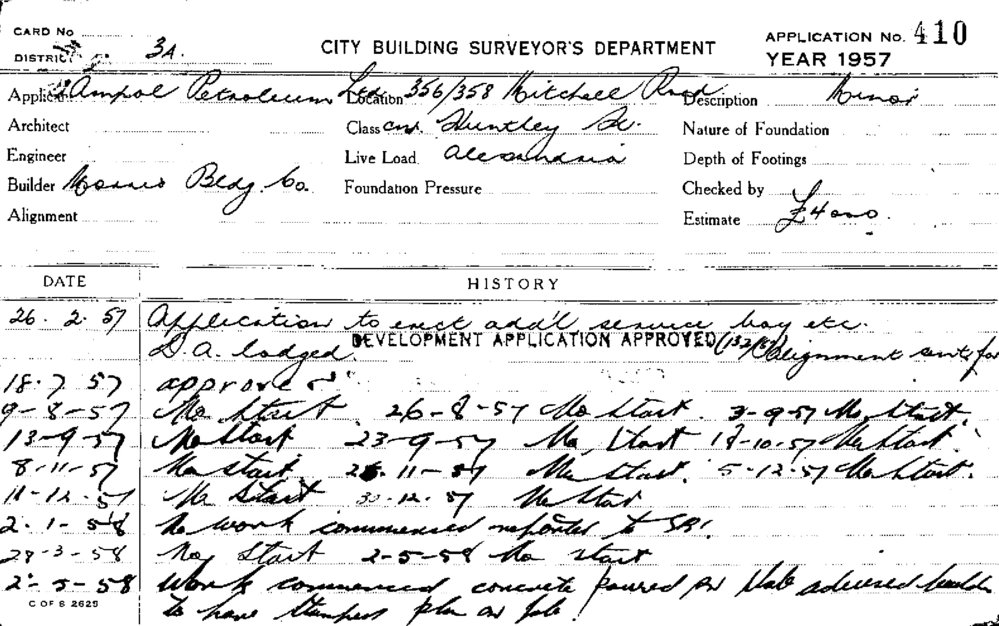 CARD No
CITY BUILDING SURVEYOR'S DEPARTMENT
APPLICATION No. 410
DISTRICT 3A.
YEAR 1957
Applicant Ampol Petroleum Ltd Location 356/358 Mitchell Road Description Minor
Architect Class cnr. Huntley St. Nature of Foundation
Engineer Live Load Alexandria Depth of Footings
Builder Morris Bldg. Co. Foundation Pressure Checked by
Alignment Estimate £4000.
DATE HISTORY
26. 2. 57 Application to erect add'l service bay etc.
D.A. lodged. DEVELOPMENT APPLICATION APPROVED (132/57) alignment sent for
18. 7 57 approved
9-8-57 No Start. 26-8-57 No Start. 3-9-57 No Start.
13-9-57 No Start 23-9-57 No Start 18-10-57 No Start.
8-11-57 No start 11-57 No Start. 5-12-57 No Start.
11-12-57 No Start 30-12-57 No Start
2. 1-58 No work commenced reported to
28-3-58 No Start 2-5-58 No start
2-5-58 Work commenced concrete poured for slab advised builder
C OF S 2629 to have stamped plan on job.